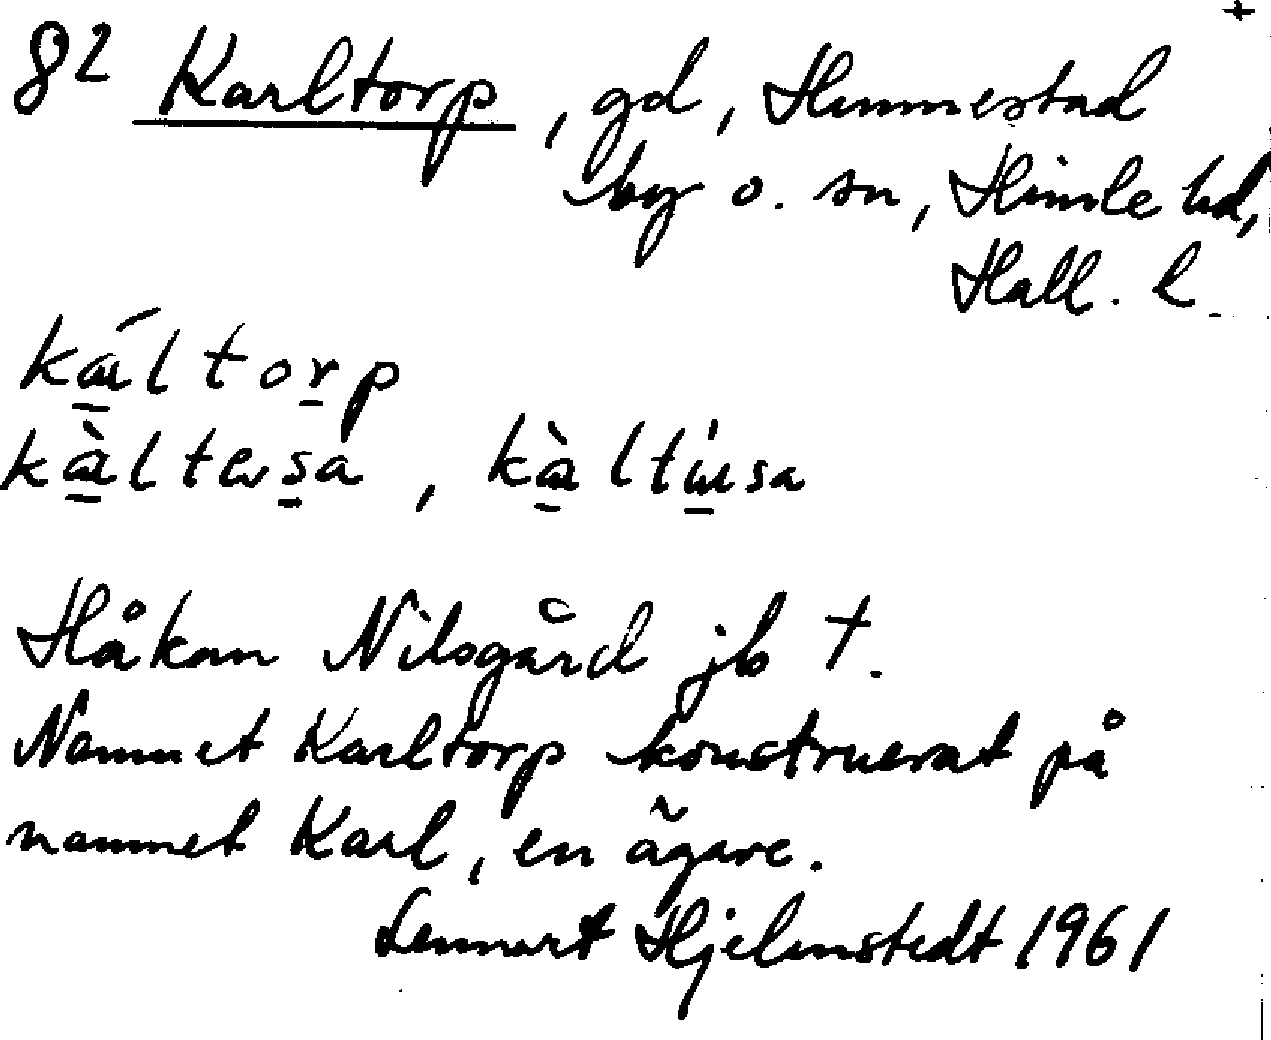 +
82 Karltorp, gd, Hunnestad
by o. sn, Himle hd,
Hall. l.
káltorp
kàltersa, kàltúsa
Håkan Nilsgård jb †.
Namnet Karltorp konstruerat på
namnet Karl, en ägare.
Lennart Hjelmstedt 1961